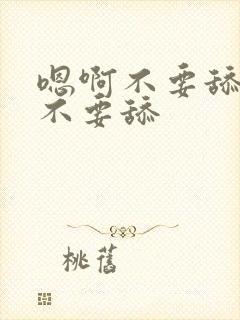 嗯啊不要舔
不要舔
桃舊